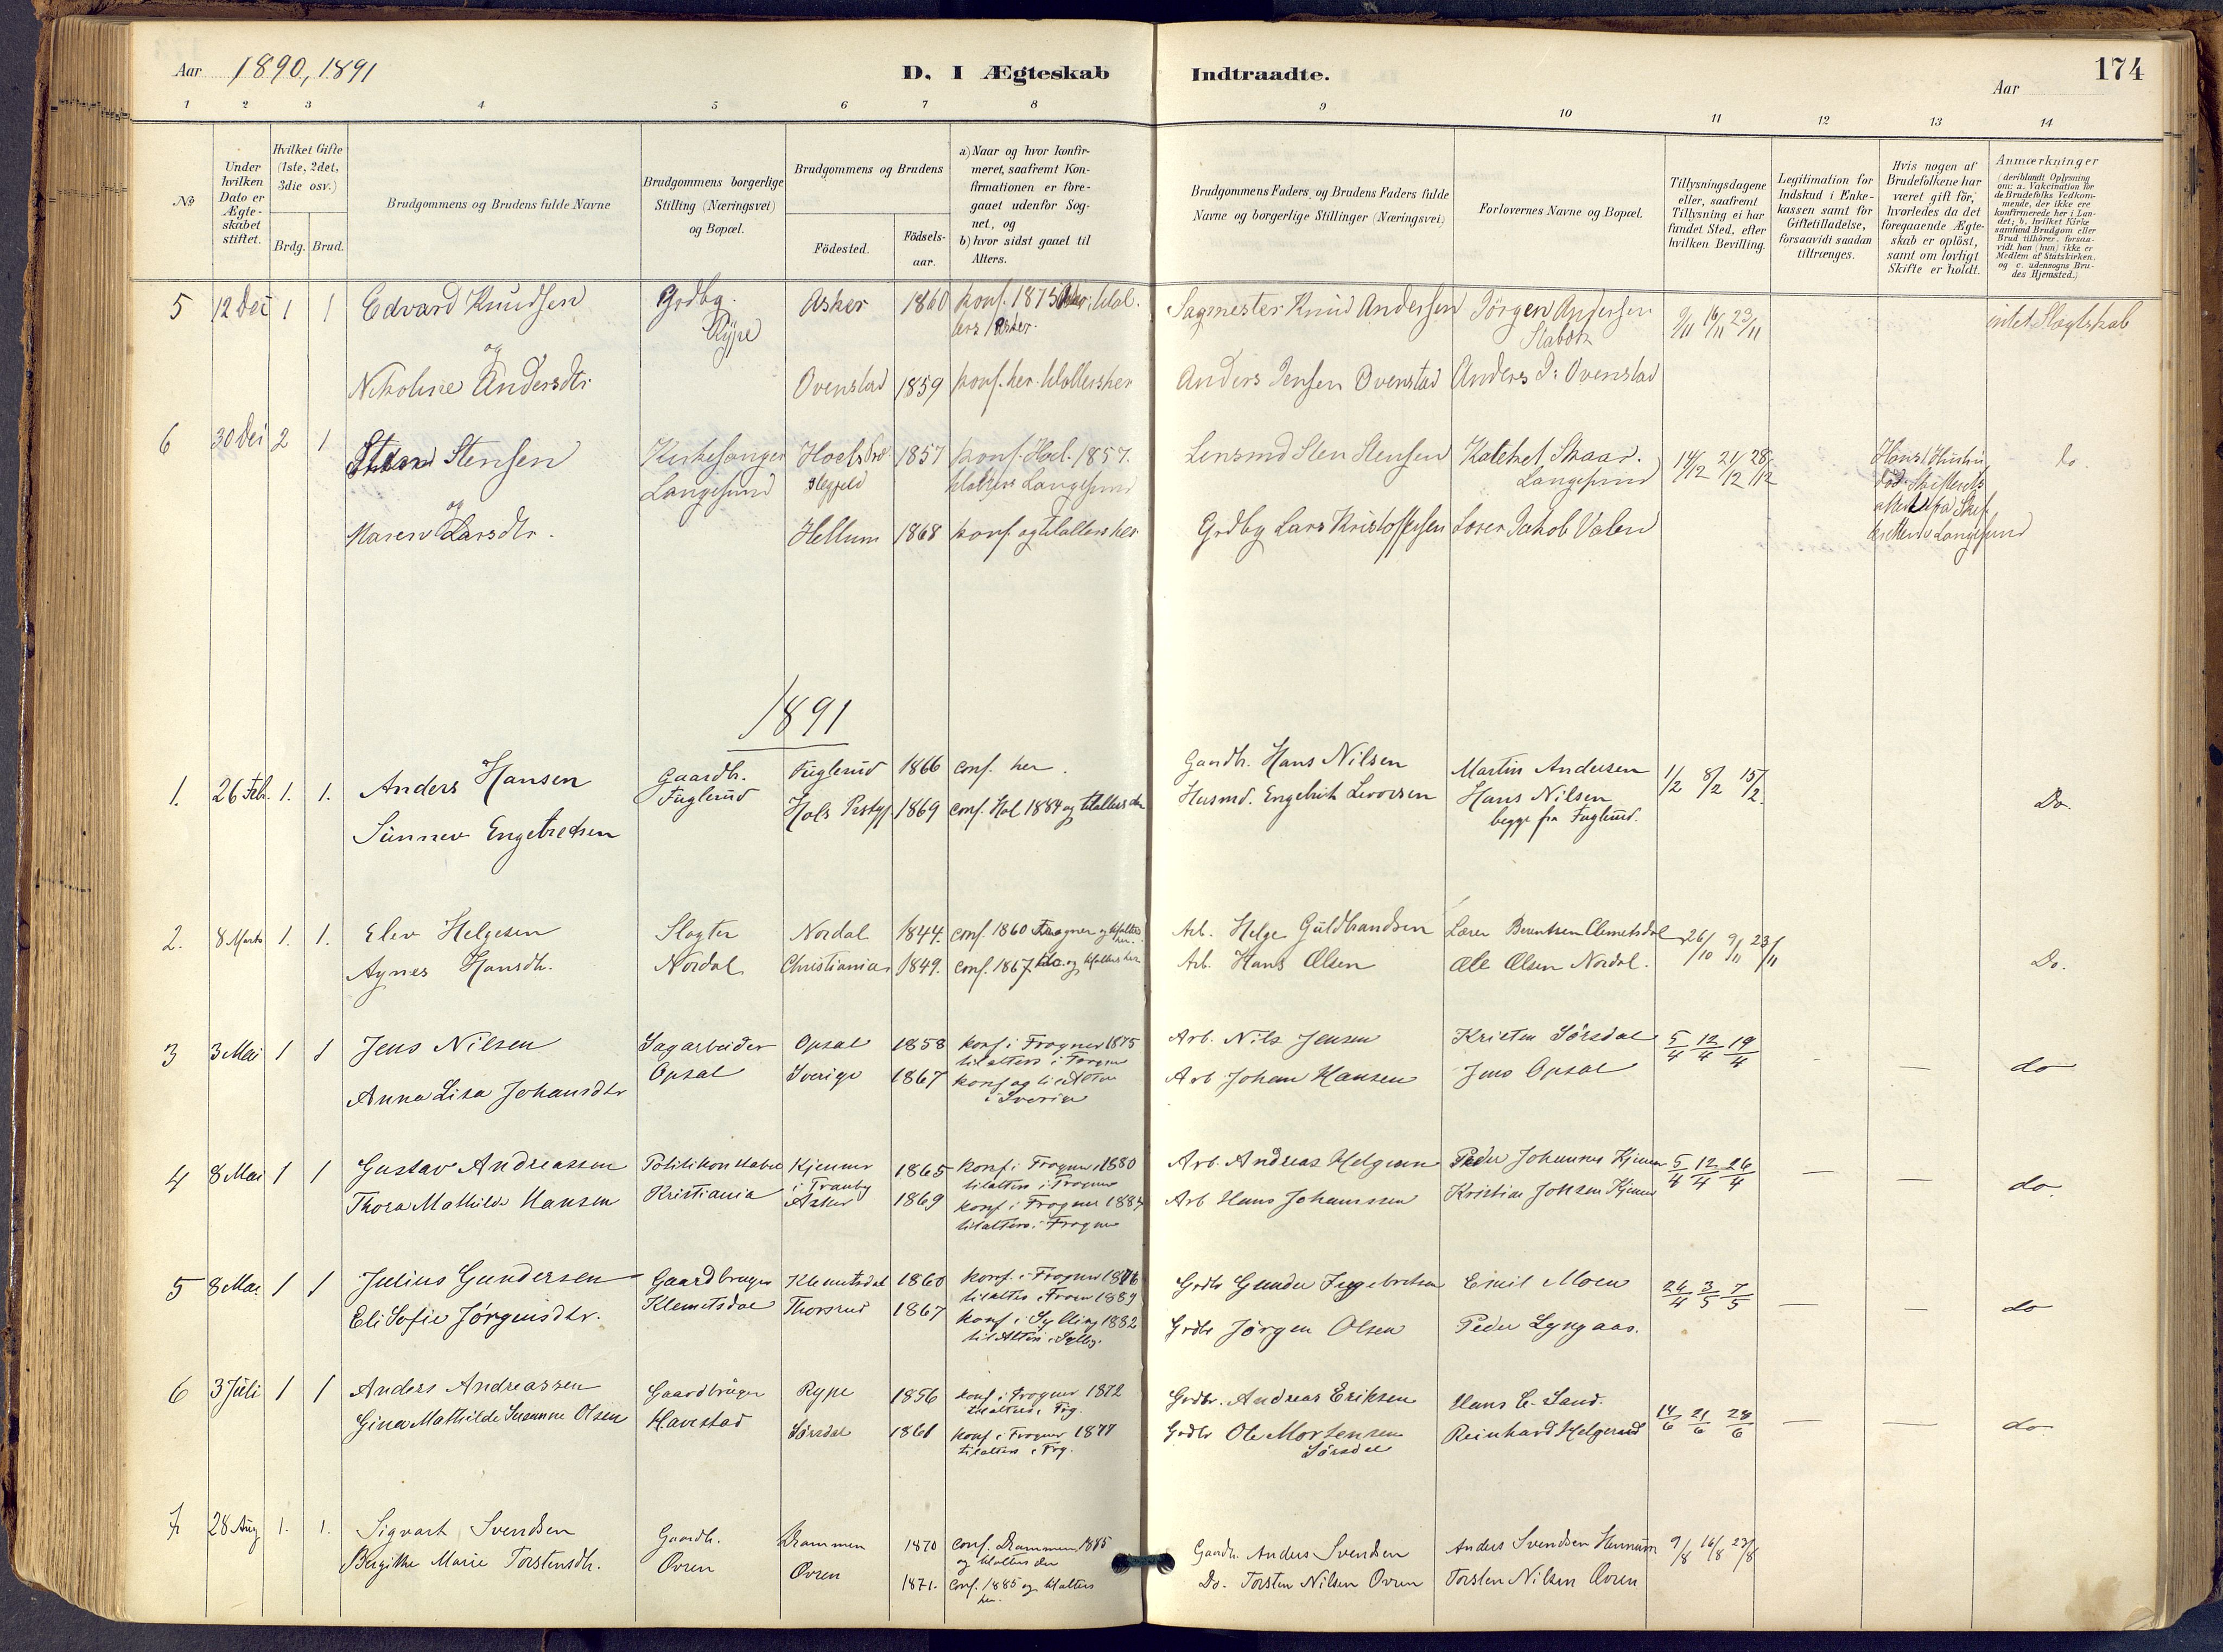 Aar 1890, 1891
D. I Ægteskab Indtraadte.
Aar
174
1 2 3 4 5 6 7 8 9 10 11 12 13 14
№
Under hvilken Dato er Ægteskabet stiftet.
Hvilket Gifte (1ste, 2det, 3die osv.)
Brdg. Brud.
Brudgommens og Brudens fulde Navne
Brudgommens borgerlige Stilling (Næringsvei) og Bopæl.
Brudgommens og Brudens
Födested.
Födsels-aar.
a) Naar og hvor konfirmeret, saafremt Konfirmationen er foregaaet udenfor Sognet, og
b) hvor sidst gaaet til Alters.
Brudgommens Faders og Brudens Faders fulde Navne og borgerlige Stillinger (Næringsvei)
Forlovernes Navne og Bopæl.
Tillysningsdagene eller, saafremt Tillysning ei har fundet Sted, efter hvilken Bevilling.
Legitimation for Indskud i Enkekassen samt for Giftetilladelse, forsaavidt saadan tiltrænges.
Hvis nogen af Brudefolkene har været gift för, hvorledes da det foregaaende Ægteskab er oplöst, samt om lovligt Skifte er holdt.
Anmærkninger (deriblandt Oplysning om: a. Vakcination för de Brudefolks Vedkommende, der ikke ere konfirmerede her i Landet; b. hvilket Kirkesamfund Brudgom eller Brud tilhörer, forsaavidt han (hun) ikke er Medlem af Statskirken, og c. udensogns Brudes Hjemsted.)
5 12 Dec 1 1 Edvard Knudsen Grdbg. Asker 1860 konf. 1875 Asker, tilal. Sagmester Knud Andersen Jörgen Andersen 9/11 16/11 23/11 intet Slægtskab
og Rype ters Asker. Stabæk
Nikoline Andersdtr Ovenstad 1859 konf. her. tilalters her Anders Jensen Ovenstad Anders J: Ovenstad
6 30 Dec 2 1 Sten Stensen Kirkesanger Hols Præ 1857 konf. Hol. 1857. Lensmd Sten Stensen Katehet Skaar. 14/12 21/12 28/12 do.
Langesund stegjeld tilalters Langesund Langesund
og
Maren Larsdtr. Hellum 1868 konf. og tilalters her Grdbg Lars Kristoffersen Lærer Jakob Valen Langesund
1891
1. 26 Feb. 1. 1. Anders Hansen Gaardb. Fuglerud 1866 conf. her. Gaardb. Hans Nilsen Martin Andersen 1/2 8/2 15/2.
Fuglerud Hols Prstgj. 1869 conf. Hol 1884 og tilalters der Husmd. Engebrik Levorsen Hans Nilsen Do.
Sünnev Engebretsen begge fra Fuglerud.
2. 8 Marts 1. 1. Elev Helgesen Slagter Nordal 1844. conf. 1860 Frogner og tilalters her. Arb. Helge Guldbrandsen Lærer Berentsen Clemetsdal 26/10 9/11 23/11
Agnes Hansdtr. Nordal Christiania 1849. conf. 1867 og tilalters her Arb. Hans Olsen Ole Olsen Nordal. Do.
3 3 Mai 1 1 Jens Nilsen Sagarbeider Opsal 1858 konf i Frogner 1875 Arb. Nils Jensen Kristen Sørsdal 5/4 12/4 19/4
tilalters i Frogner
Anna Lisa Johansdtr Opsal Sverige 1867 konf og tilalters Arb Johan Hansen Jens Opsal — do
i Sverige
4 8 Mai 1 1 Gustav Andreassen Politikonstabel Kjenner 1865 konf i Frogner 1880 Arb. Andreas Helgesen Peder Johannes Kjenner 5/4 12/4 26/4 — — do.
i Tranby tilalters i Frogner
Thora Mathilde Hansen Kristiania Asker 1869 konf i Frogner 1884 Arb Hans Johanssen Kristian Johsen Kjenner
tilalters i Frogner
5 8 Mai 1 1 Julius Gundersen Gaardbruger Klemetsdal 1860 konf. i Frogner 1876 Grdb Gunder Ingebretsen Emil Moen 26/4 3/5 7/5 — — do
tilalters i Frogner 1889
Eli Sofie Jørgensdtr. Klemetsdal Thorsrud 1867 konf i Sylling 1882 Grdb Jørgen Olsen Peder Lyngaas.
til Alters i Sylling.
6 3 Juli 1 1 Anders Andreassen Gaardbruger Rype 1856 konf i Frogner 1872 Grdbr. Andreas Eriksen Hans C. Sand. 14/6 21/6 28/6 — — do.
tilalters i Frg.
Gina Mathilde Susanne Olsen Havestad Sørsdal 1861 konf i Frogner 1877 Grdb Ole Mortensen Reinhard Helgerud
tilalters i Frg. Sørsdal
7 28 Aug 1. 1. Sigvart Svendsen Gaardb. Drammen 1870 conf. Drammen 1885 Gaardb. Anders Svendsen Anders Svendsen Hennum 9/8 16/8 23/8
og tilalters der
Bergitte Marie Torstensdtr. Ovren Ovren 1871. conf. 1885 og tilalters her. Do. Torsten Nilsen Ovren Torsten Nilsen Ovren